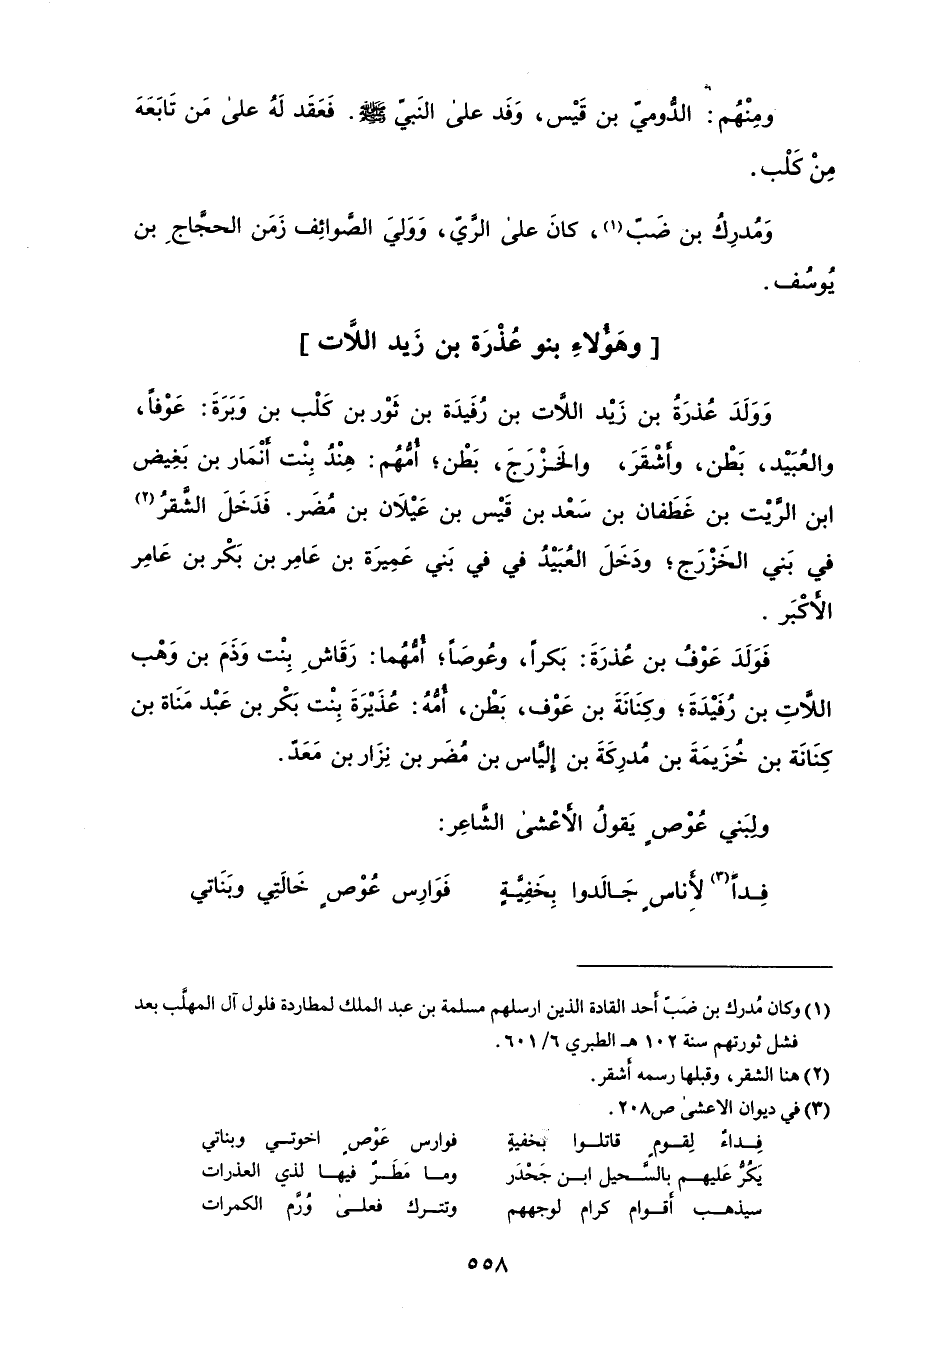 ومِنْهُم: الدُّوميّ بن قَيْس، وَفَد علىٰ النَبيّ ﷺ. فَعَقَد لَهُ علىٰ مَن تَابَعَهَ
مِنْ كَلْب.
وَمُدرِكُ بن ضَبّ(١)، كانَ علىٰ الرَّيّ، وَوَليَ الصَّوائِف زَمَن الحجَّاجِ بن
يُوسُف.
[ وهَؤُلاءِ بنو عُذْرَة بن زَيد اللَّات ]
وَوَلَدَ عُذرَةُ بن زَيْد اللَّات بن رُفَيدَة بن ثَوْر بن كَلْب بن وَبَرَةَ: عَوْفاً،
والعُبَيْد، بَطْن، وأَشْقَرَ، والخَزْرَجَ، بَطْن؛ أُمُّهُم: هِنْدُ بِنْت أَنْمَار بن بَغِيض
ابن الرَّيْت بن غَطَفان بن سَعْد بن قَيْس بن عَيْلَان بن مُضَر. فَدَخَلَ الشَّقرُ(٢)
في بَني الخَزْرَج؛ ودَخَلَ العُبَيْدُ في في بَني عَمِيرَة بن عَامِر بن بَكْر بن عَامِر
الأَكْبَر.
فَوَلَدَ عَوْفُ بن عُذرَةَ: بَكراً، وعُوصَاً؛ أُمُّهُما: رَقَاشِ بِنْت وَذَمَ بن وَهْب
اللَّاتِ بن رُفَيْدَة؛ وكِنَانَة بن عَوْف، بَطْن، أُمُّهُ: عُذَيْرَة بِنْت بَكْر بن عَبْد مَنَاة بن
كِنَانَة بن خُزَيمَةَ بن مُدرِكَةَ بن إِليَّاس بن مُضَر بن نِزَار بن مَعَدّ.
ولِبَني عُوْصٍ يَقولُ الأَعْشىٰ الشَّاعِر:
فِداً(٣) لأَناسٍ جَالَدوا بِخَفيَّةٍ فَوَارِس عُوْصٍ خَالَتِي وبَنَاتي
(١) وكان مُدرك بن ضَبّ أحد القادة الذين ارسلهم مسلمة بن عبد الملك لمطاردة فلول آل المهلَّب بعد
فشل ثورتهم سنة ١٠٢ هـ الطبري ٦/ ٦٠١.
(٢) هنا الشقر، وقبلها رسمه أشقر.
(٣) في ديوان الاعشىٰ ص٢٠٨.
فِداءٌ لِقومٍ قاتلوا بخفيةٍ فوارس عَوْصٍ اخوتي وبناتي
يَكُرُّ عليهم بالسَّحيل ابن جَحْدَر وما مَطَرٌ فيها لذي العذرات
سيذهب أَقوام كرام لوجههم وتترك فعلىٰ وُرَّم الكمرات
٥٥٨